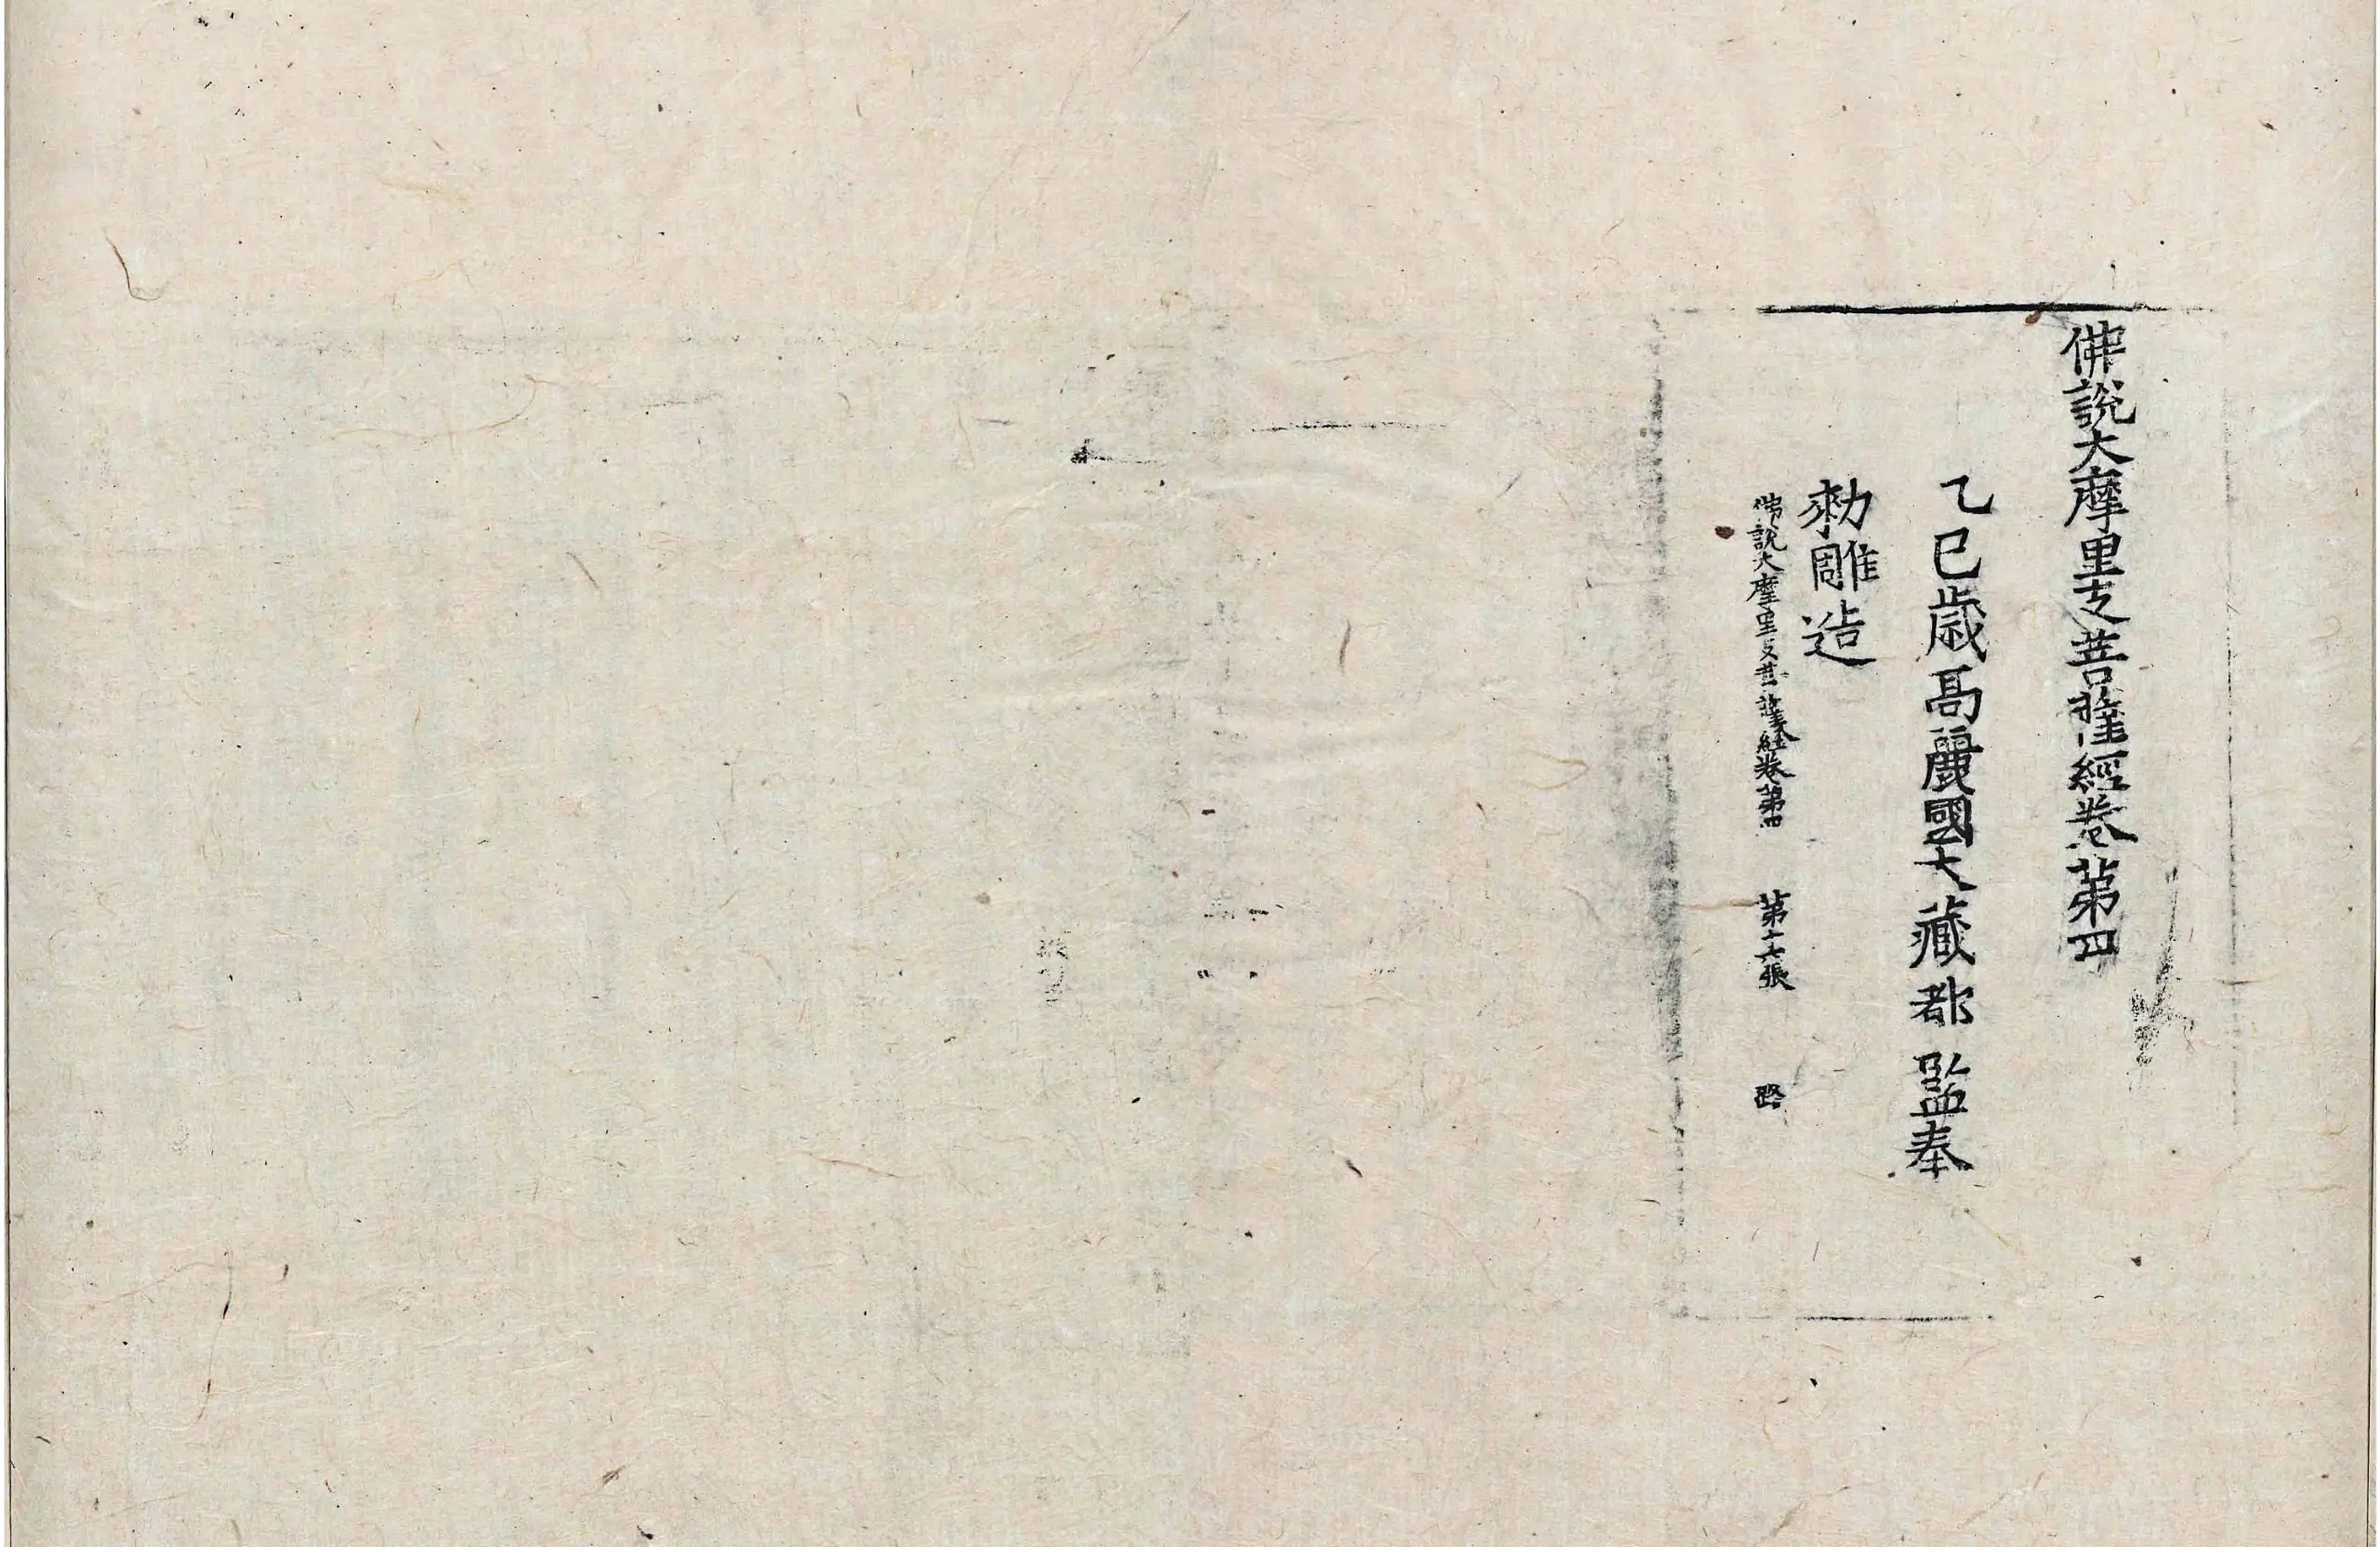 佛說大摩里支菩薩經卷第四
乙巳歲高麗國大藏都監奉
勅雕造
佛說大摩里支菩薩經卷第四 第十七張 路